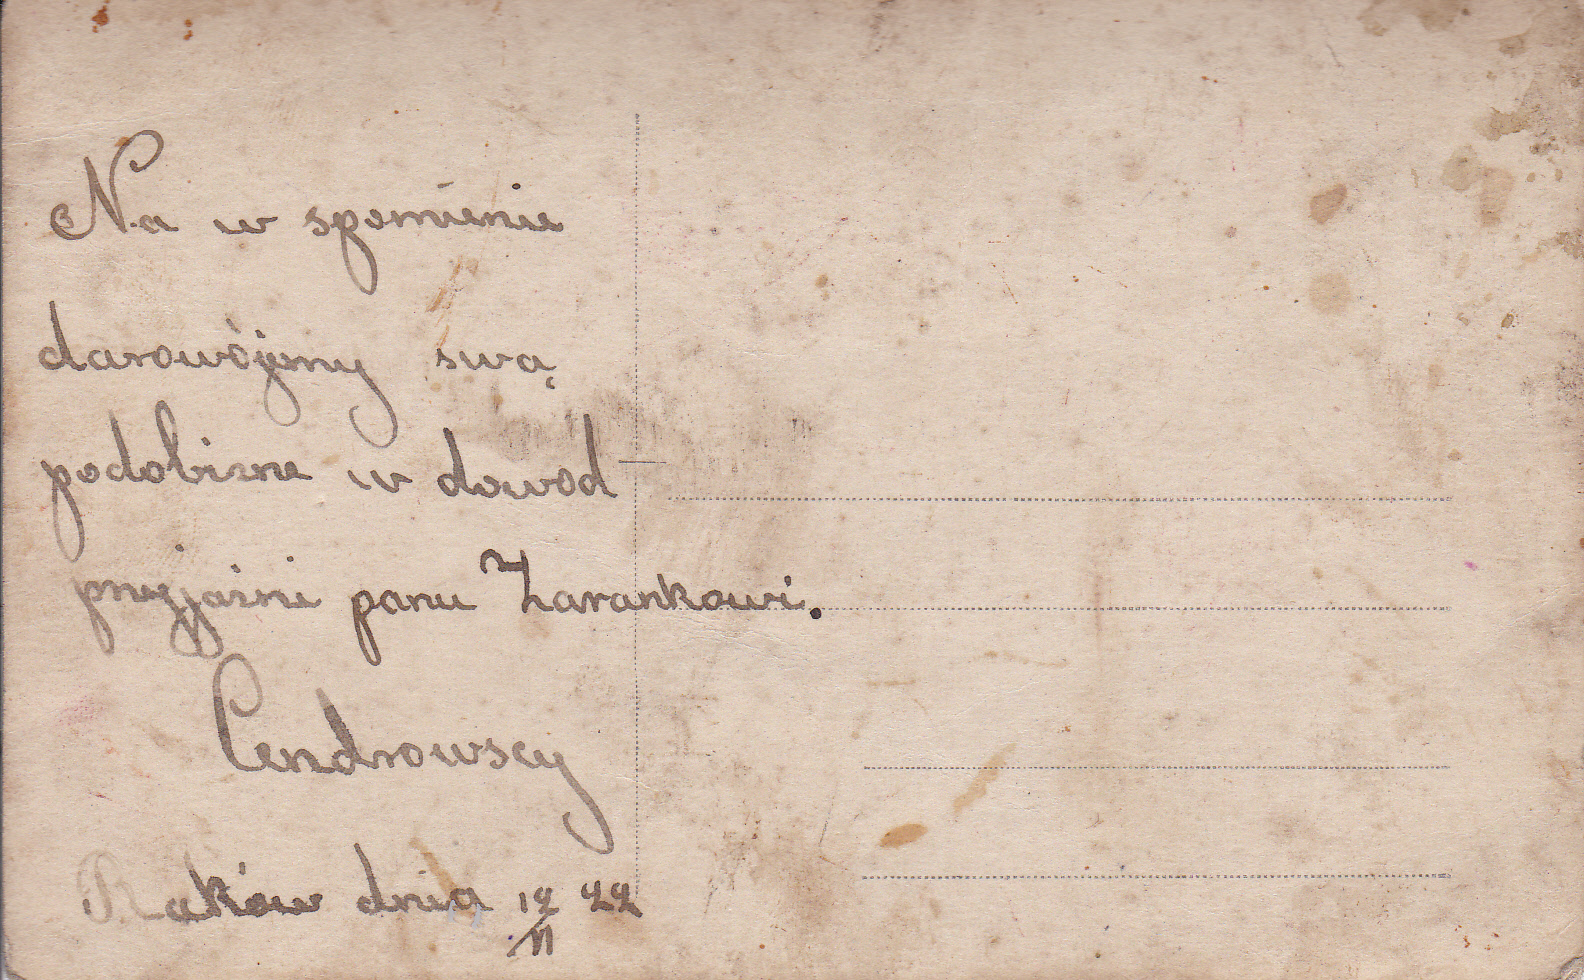 Na w spomienie
darowójemy swą
podobizne w dowod
przyjaźni panu Zarankowi.
Cendrowscy
Raków dnia 12 22
VI